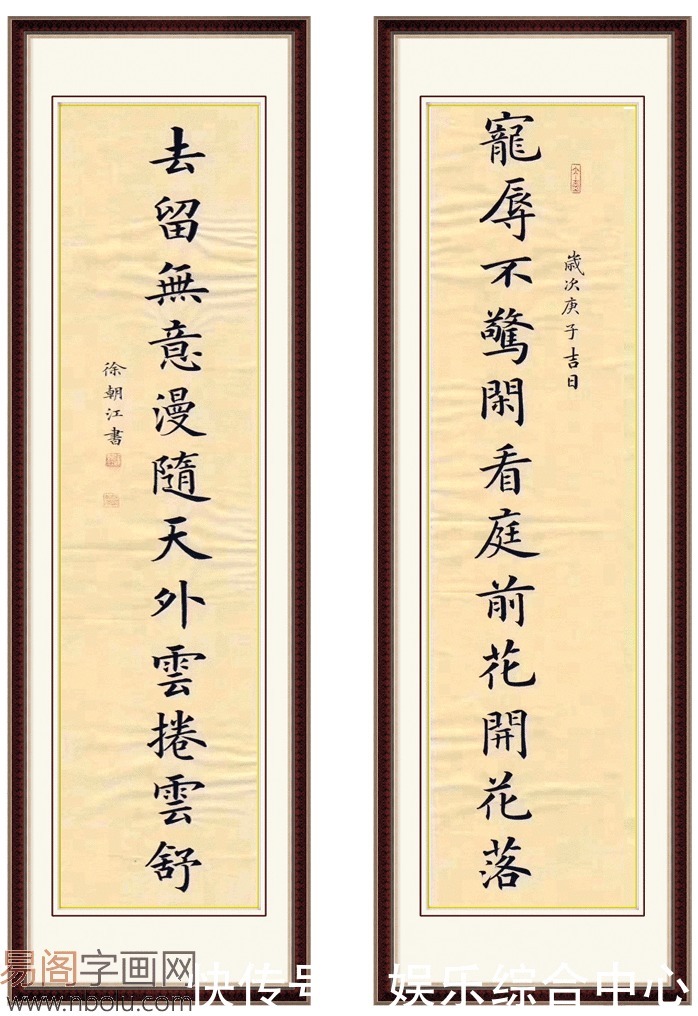 寵辱不驚閑看庭前花開花落
歲次庚子吉日
去留無意漫隨天外雲捲雲舒
徐朝江書
易阁字画网
www.nbolu.com
快传号
娱乐综合中心